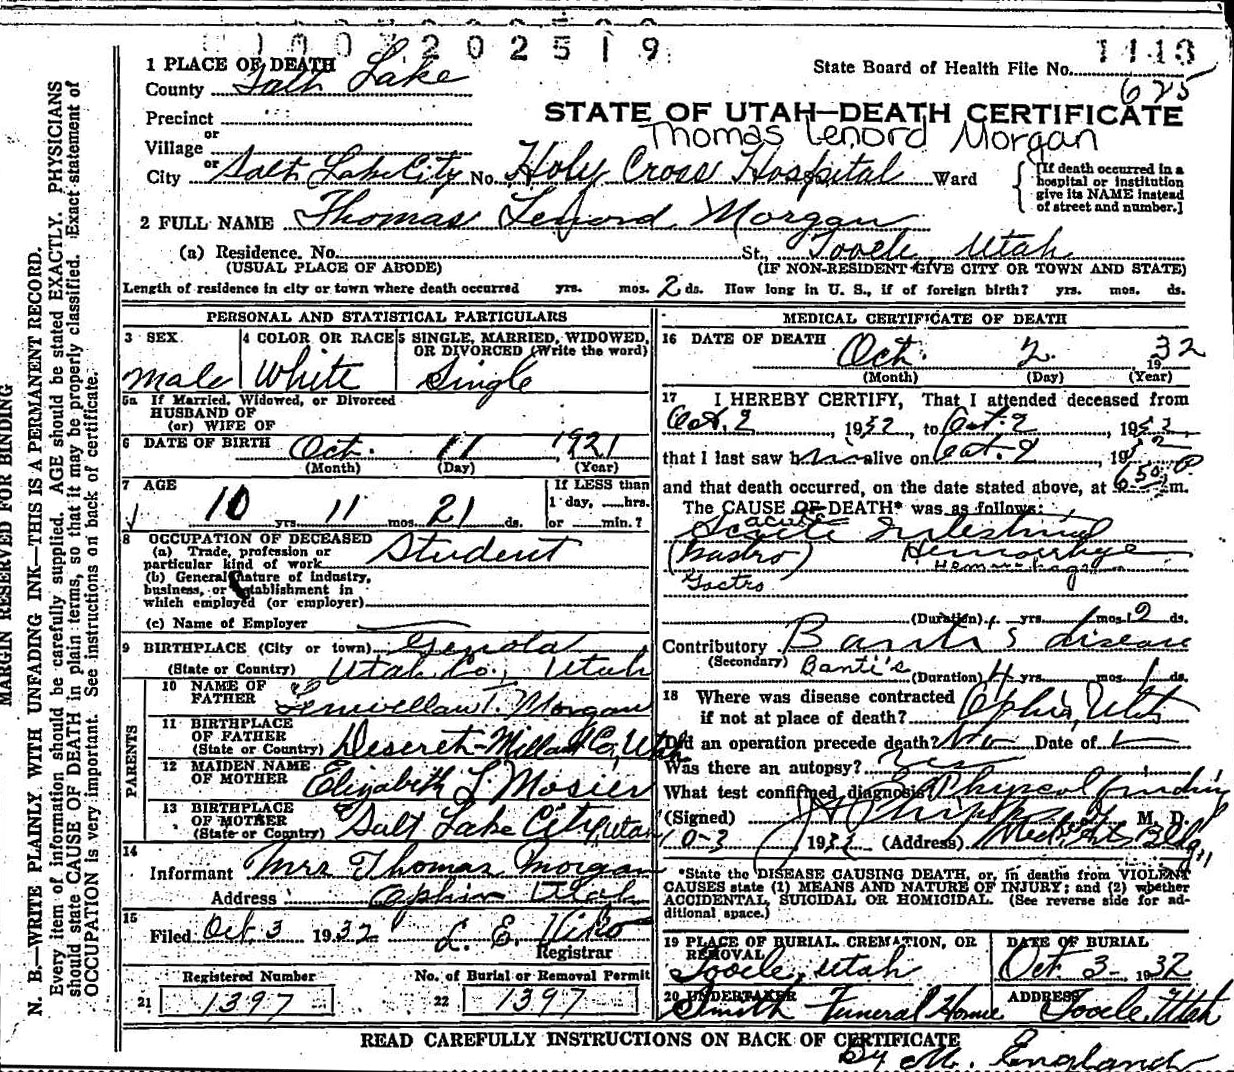 1007202519
1113
1 PLACE OF DEATH
State Board of Health File No.
625
County Salt Lake
STATE OF UTAH—DEATH CERTIFICATE
Precinct
Thomas Lenord Morgan
or
Village
or
City Salt Lake City No. Holy Cross Hospital Ward
[If death occurred in a hospital or institution give its NAME instead of street and number.]
2 FULL NAME Thomas Lenord Morgan
(a) Residence. No. St., Tooele, Utah
(USUAL PLACE OF ABODE) (IF NON-RESIDENT GIVE CITY OR TOWN AND STATE)
Length of residence in city or town where death occurred yrs. mos. 2 ds. How long in U. S., if of foreign birth? yrs. mos. ds.
PERSONAL AND STATISTICAL PARTICULARS
3 SEX Male
4 COLOR OR RACE White
5 SINGLE, MARRIED, WIDOWED, OR DIVORCED (Write the word) Single
5a If Married, Widowed, or Divorced
HUSBAND OF
(or) WIFE OF
6 DATE OF BIRTH Oct. 11 1921
(Month) (Day) (Year)
7 AGE 10 yrs. 11 mos. 21 ds.
If LESS than
1 day, hrs.
or min.?
8 OCCUPATION OF DECEASED
(a) Trade, profession or
particular kind of work Student
(b) General nature of industry,
business, or establishment in
which employed (or employer)
(c) Name of Employer
9 BIRTHPLACE (City or town) Genola
(State or Country) Utah Co., Utah
PARENTS
10 NAME OF FATHER T. Morgan
11 BIRTHPLACE OF FATHER
(State or Country) Deseret-Millard Co, Utah
12 MAIDEN NAME OF MOTHER Elizabeth L. Mosier
13 BIRTHPLACE OF MOTHER
(State or Country) Salt Lake City, Utah
14 Informant Mrs Thomas Morgan
Address Ophir Utah
15 Filed Oct 3 1932 L. E.
Registrar
Registered Number
21 1397
No. of Burial or Removal Permit
22 1397
MEDICAL CERTIFICATE OF DEATH
16 DATE OF DEATH Oct. 2 1932
(Month) (Day) (Year)
17 I HEREBY CERTIFY, That I attended deceased from
Oct. 2, 1932, to Oct. 2, 1932
that I last saw him alive on Oct. 2, 1932
and that death occurred, on the date stated above, at 6:50 P m.
The CAUSE OF DEATH* was as follows:
acute
Acute Intestinal
(Gastro) Hemorrhage
Hemorrhage
Gastro
(Duration) yrs. mos. 2 ds.
Contributory Banti's disease
(Secondary) Banti's
(Duration) 4 yrs. mos. ds.
18 Where was disease contracted
if not at place of death? Ophir, Utah
Did an operation precede death? No Date of
Was there an autopsy? Yes
What test confirmed diagnosis? Physical finding
(Signed) M. D.
10-3 1932 (Address) Med. Arts Bldg
*State the DISEASE CAUSING DEATH, or, in deaths from VIOLENT
CAUSES state (1) MEANS AND NATURE OF INJURY; and (2) whether
ACCIDENTAL, SUICIDAL OR HOMICIDAL. (See reverse side for ad-
ditional space.)
19 PLACE OF BURIAL, CREMATION, OR REMOVAL
Tooele, Utah
DATE OF BURIAL
Oct. 3 1932
20 UNDERTAKER
Smith Funeral Home
ADDRESS
Tooele, Utah
READ CAREFULLY INSTRUCTIONS ON BACK OF CERTIFICATE
By M. England
MARGIN RESERVED FOR BINDING
N. B.—WRITE PLAINLY WITH UNFADING INK—THIS IS A PERMANENT RECORD.
Every item of information should be carefully supplied. AGE should be stated EXACTLY. PHYSICIANS
should state CAUSE OF DEATH in plain terms, so that it may be properly classified. Exact statement of
OCCUPATION is very important. See instructions on back of certificate.